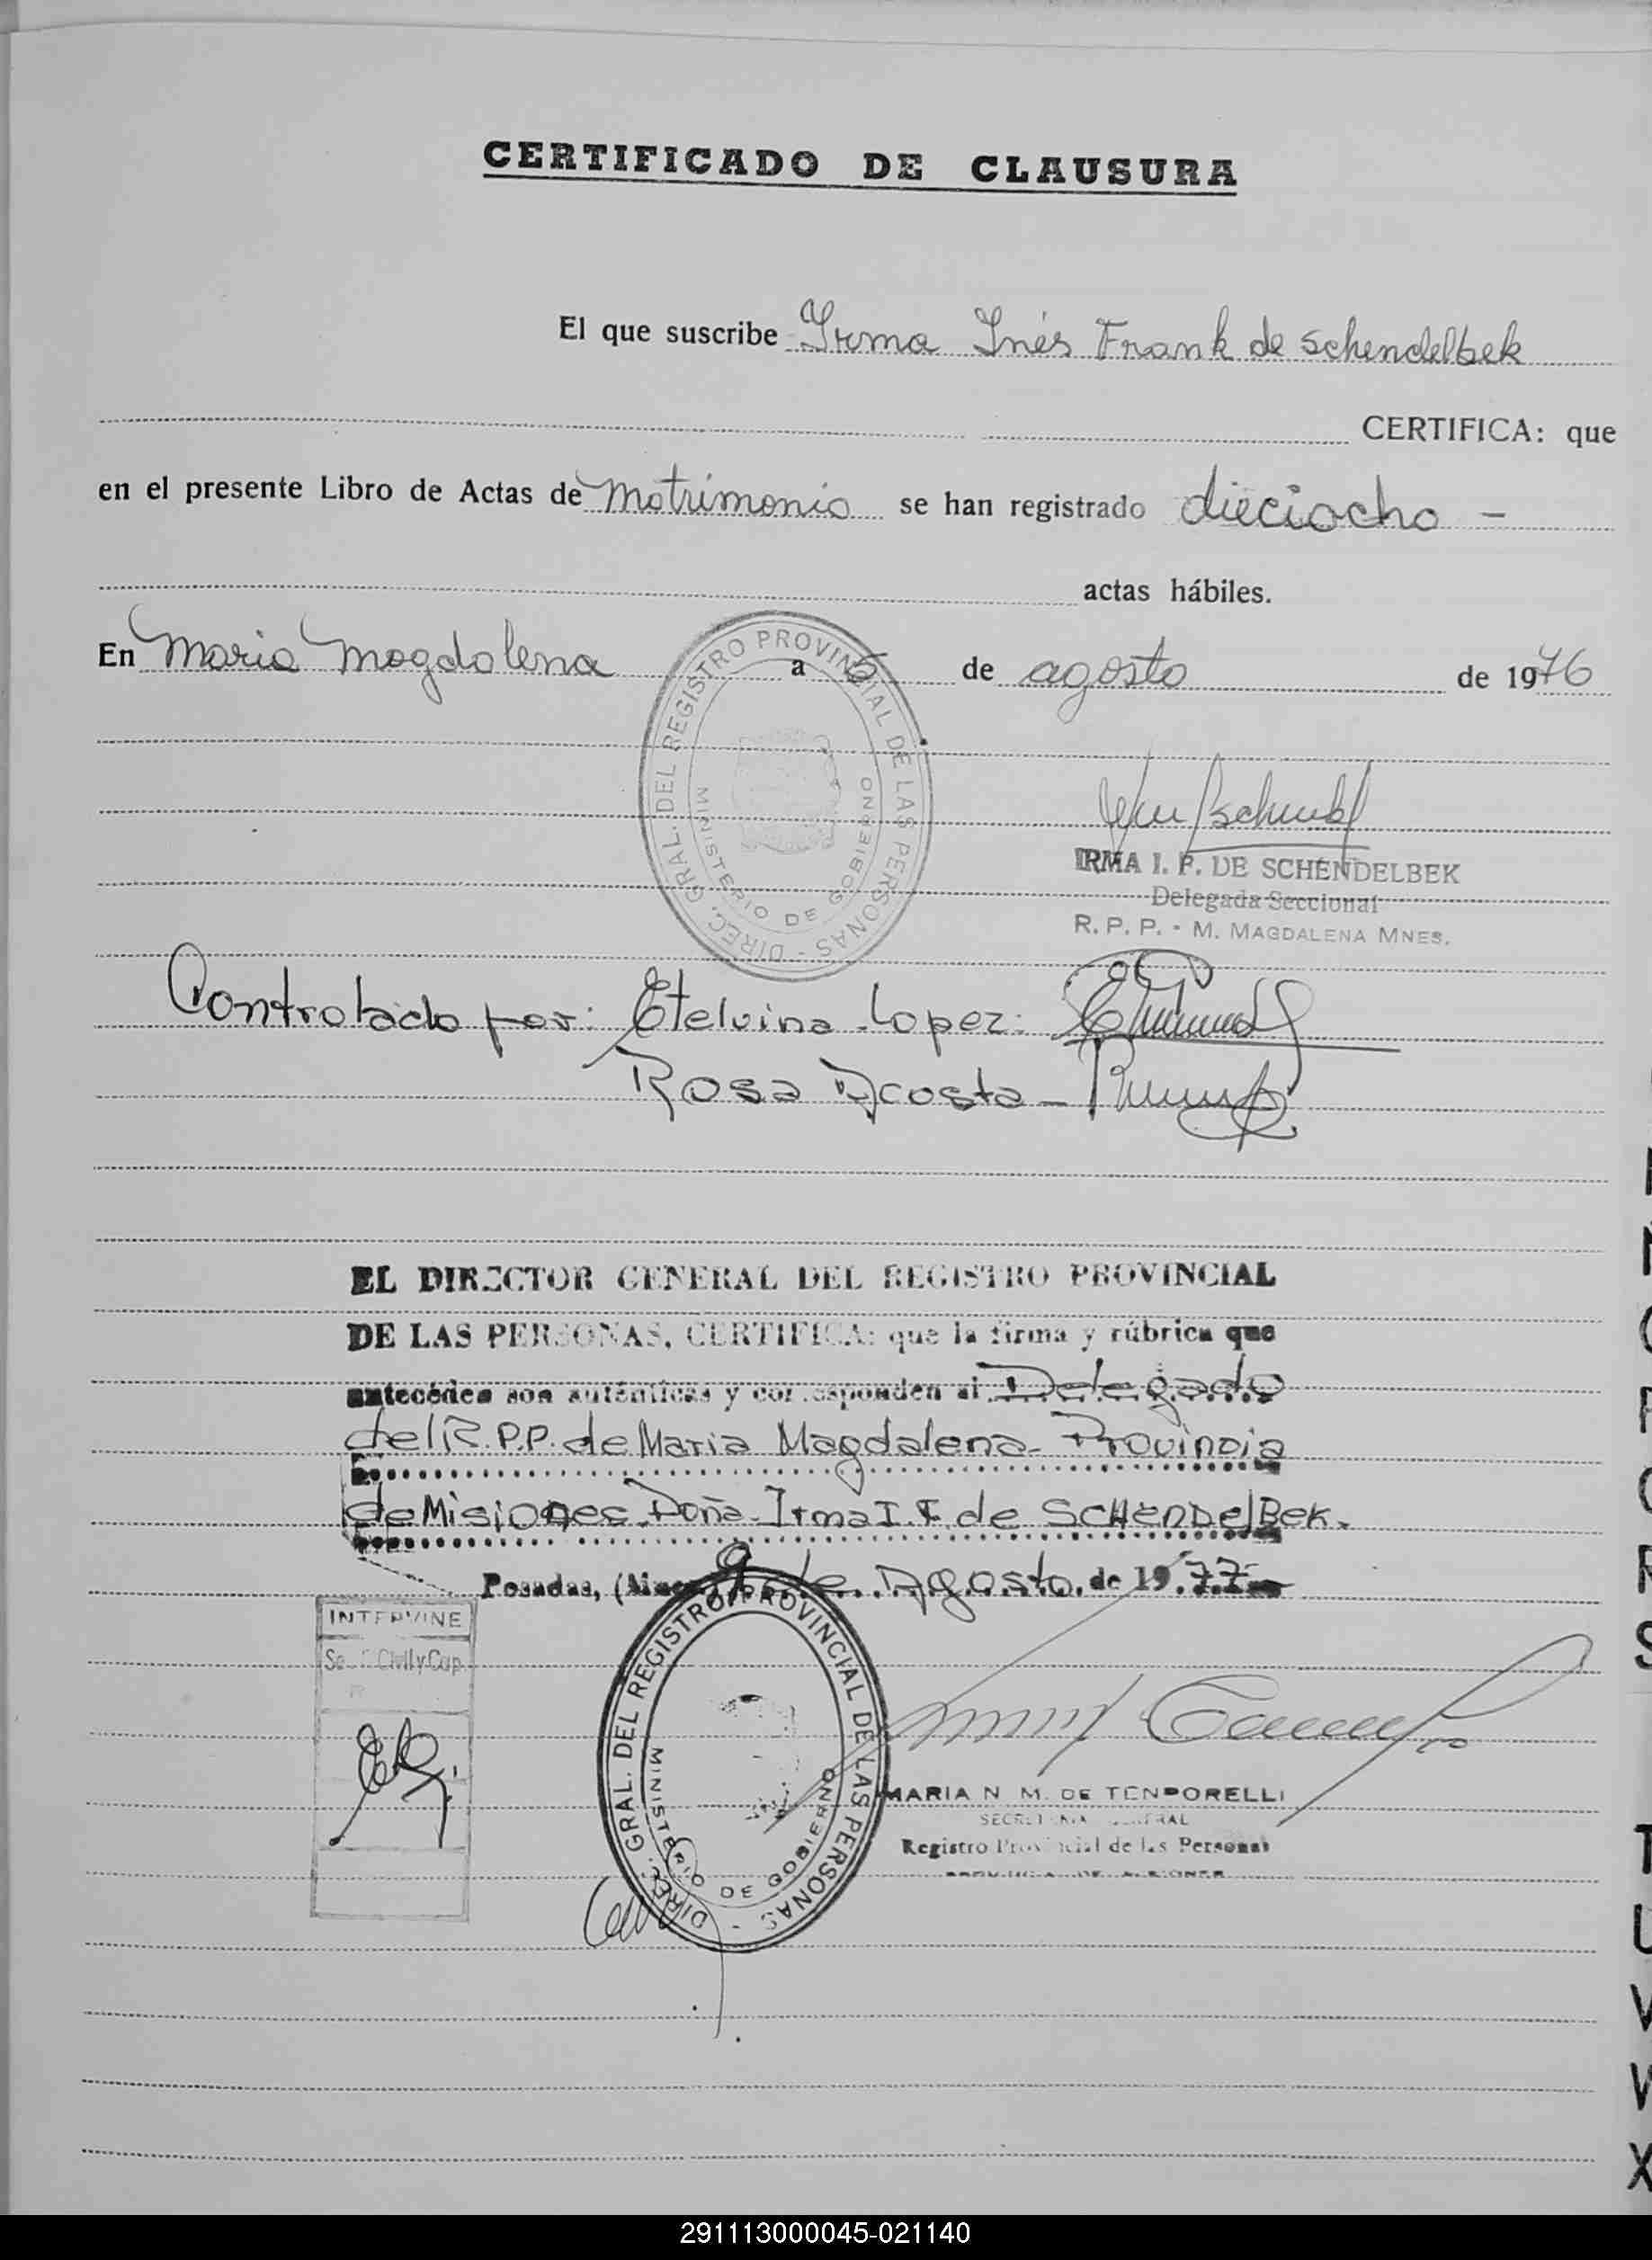 CERTIFICADO DE CLAUSURA
El que suscribe Irma Inés Frank de Schendelbek
CERTIFICA: que
en el presente Libro de Actas de Matrimonio se han registrado dieciocho -
actas hábiles.
En Maria Magdalena a 5 de agosto de 1976
DIREC. GRAL. DEL REGISTRO PROVINCIAL DE LAS PERSONAS -
MINISTERIO DE GOBIERNO
IRMA I. F. DE SCHENDELBEK
Delegada Seccional
R. P. P. - M. MAGDALENA MNES.
Controlado por: Etelvina Lopez:
Rosa Acosta -
EL DIRECTOR GENERAL DEL REGISTRO PROVINCIAL
DE LAS PERSONAS, CERTIFICA: que la firma y rúbrica que
anteceden son auténticas y corresponden al Delegado
del R.P.P. de Maria Magdalena - Provincia
de Misiones Doña Irma I. F. de SCHENDelBek.
Posadas, 9 de Agosto de 1977
INTERVINE
Civil y Cap.
DIREC. GRAL. DEL REGISTRO PROVINCIAL DE LAS PERSONAS -
MINISTERIO DE GOBIERNO
MARIA N. M. DE TENPORELLI
SECRETARIA GENERAL
Registro Provincial de las Personas
PROVINCIA DE MISIONES
T
U
V
W
X
291113000045-021140